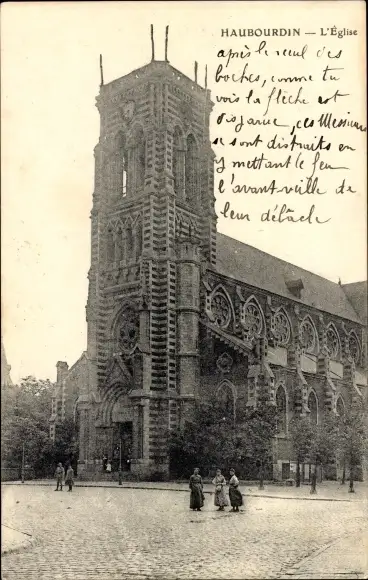 HAUBOURDIN — L'Église
après le recul des
boches, comme tu
vois la flèche est
disparue, ces Messieurs
se sont distraits en
y mettant le feu
l'avant veille de
leur débâcle